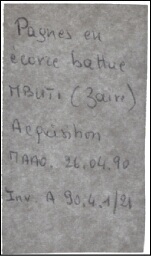 Pagnes en
écorce battue
MBUTI (Zaïre)
Acquisition
MAAO, 26.04.90
Inv. A 90.4.1/21